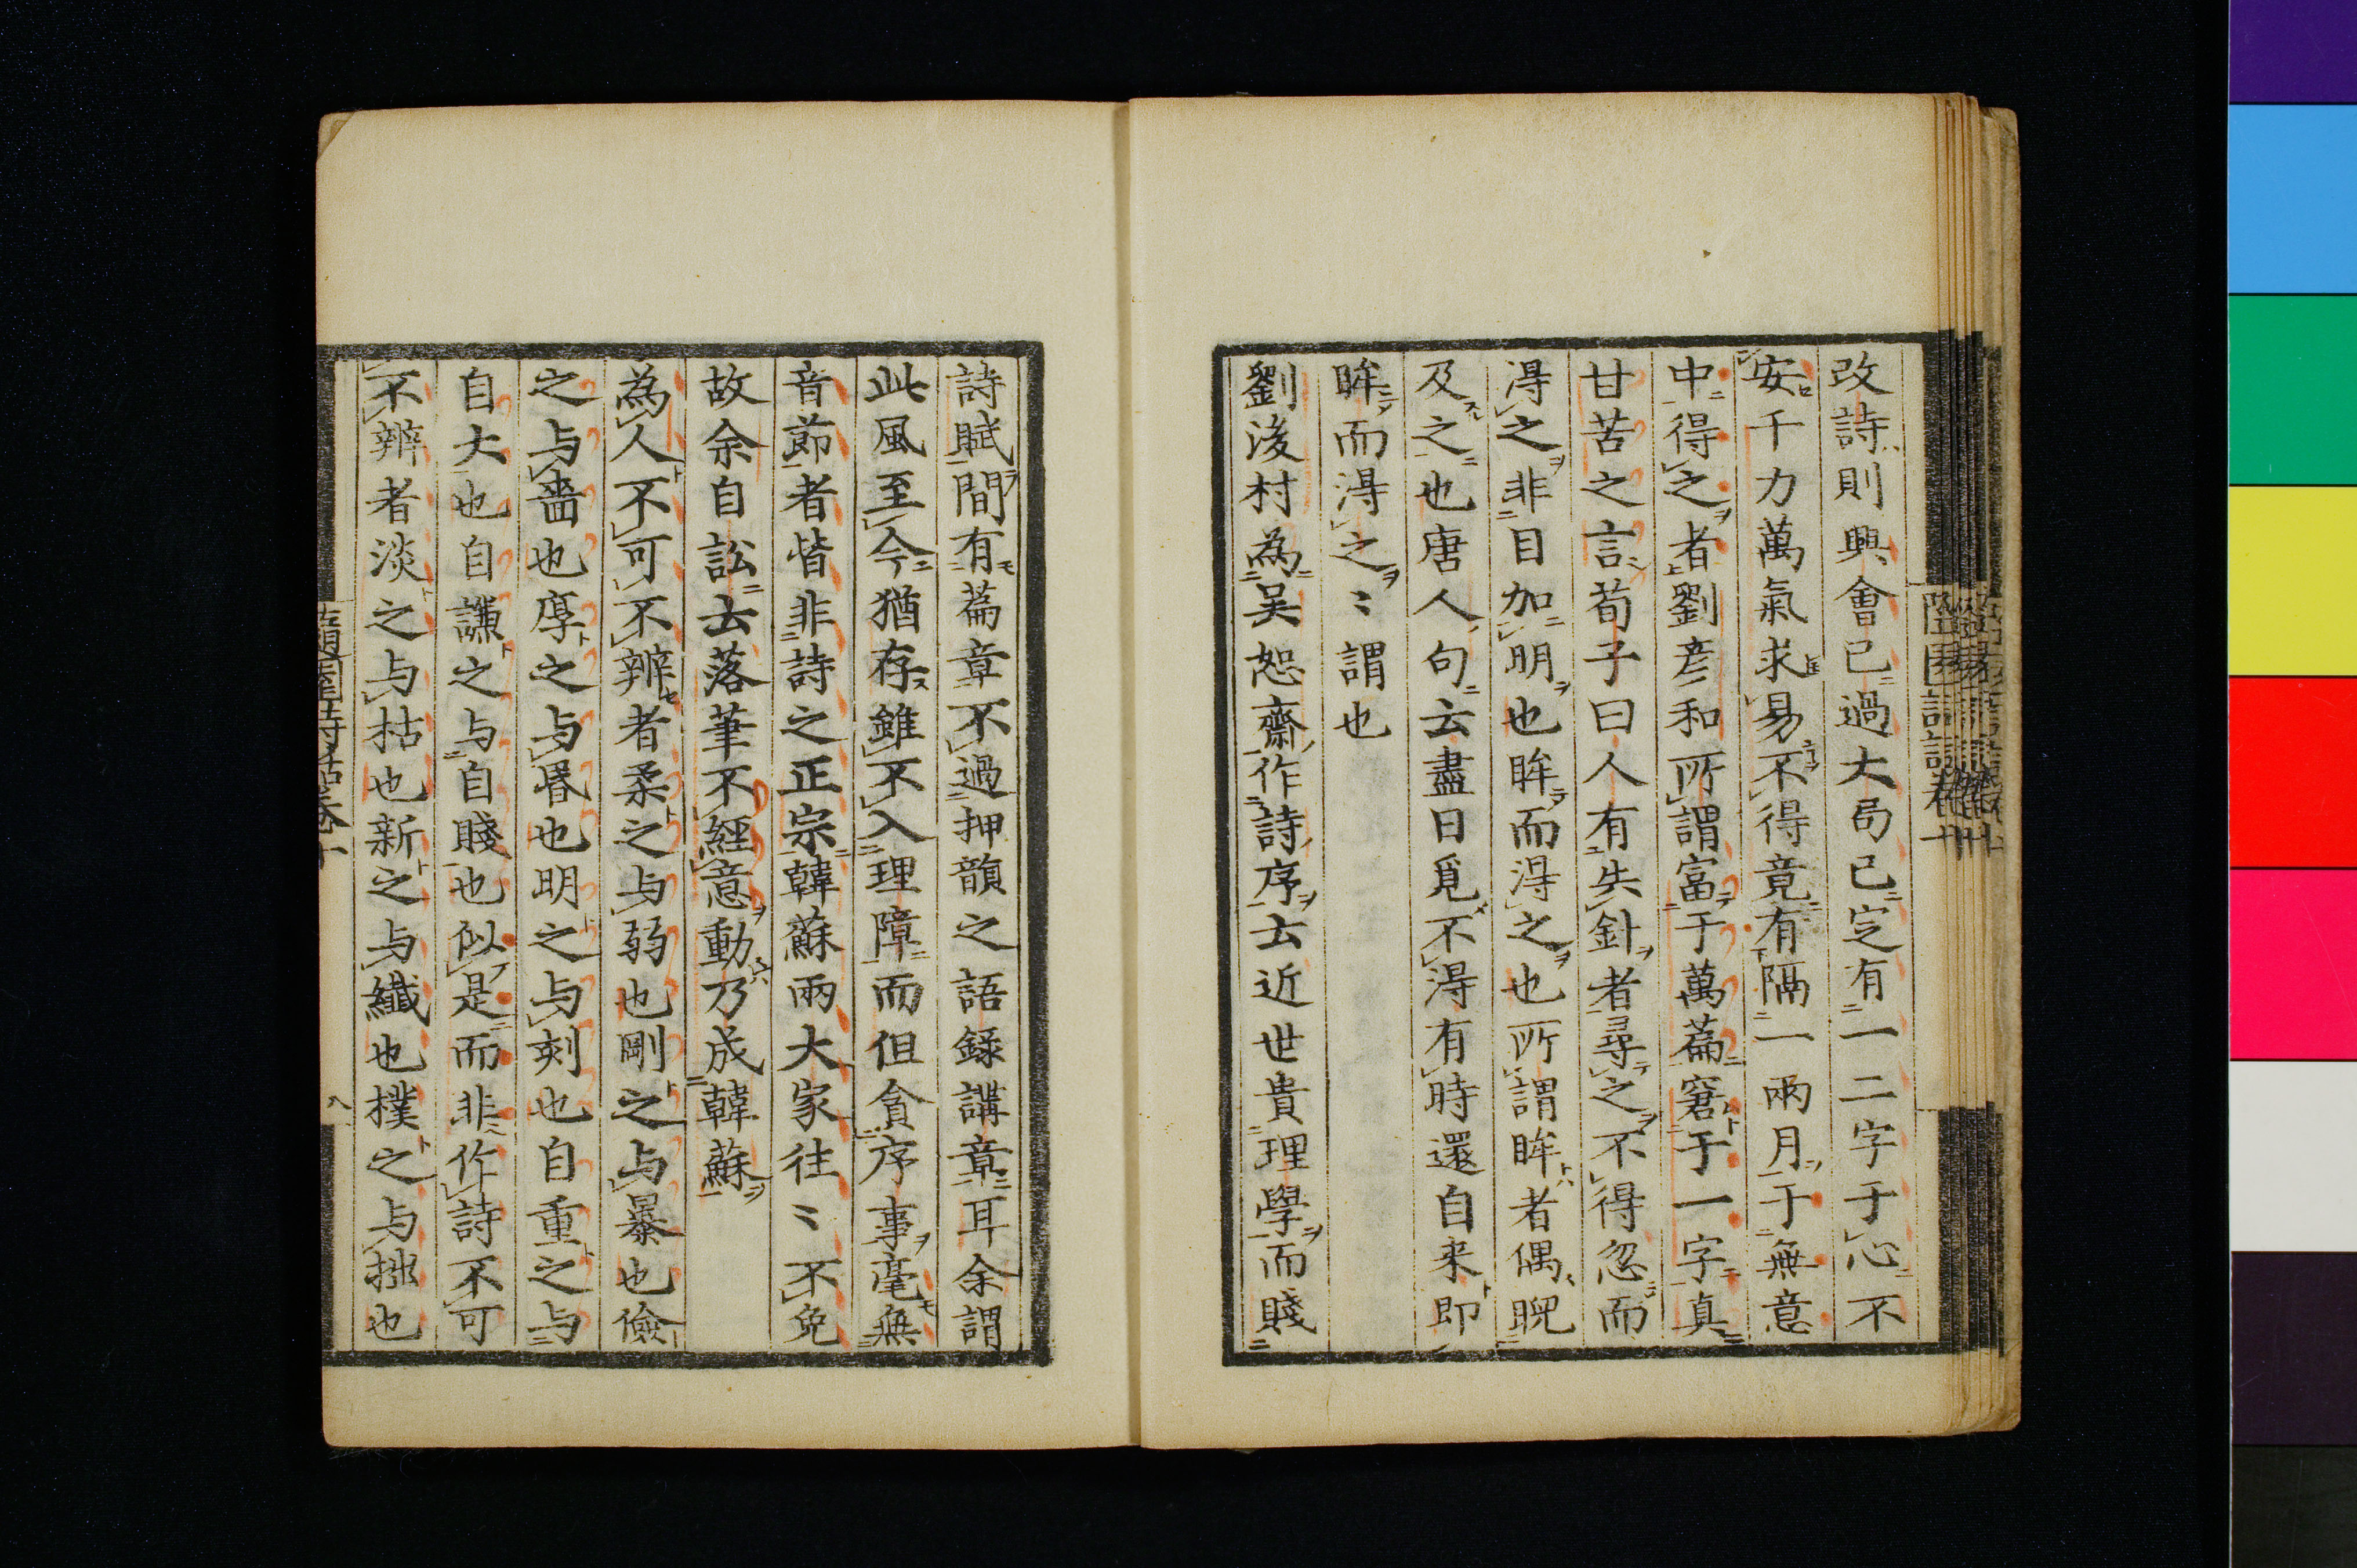 改詩則興會已過大局已定有一二字于心不
安千力萬氣求易不得竟有隔一兩月于無意
中得之者劉彦和所謂富于萬萹窘于一字真
甘苦之言荀子曰人有失針者尋之不得忽而
得之非目加明也眸而得之也所謂眸者偶睨
及之也唐人句云盡日覓不得有時還自来即
眸而得之〻謂也
劉後村為吳恕齋作詩序云近世貴理學而賤
詩賦間有萹章不過押韻之語錄講章耳余謂
此風至今猶存雖不入理障而但貪序事毫無
音節者皆非詩之正宗韓蘇兩大家往〻不免
故余自訟云落筆不經意動乃成韓蘇
為人不可不辨者柔之与弱也剛之与暴也儉
之与嗇也厚之与昬也明之与刻也自重之与
自大也自謙之与自賤也似是而非作詩不可
不辨者淡之与枯也新之与纎也樸之与拙也